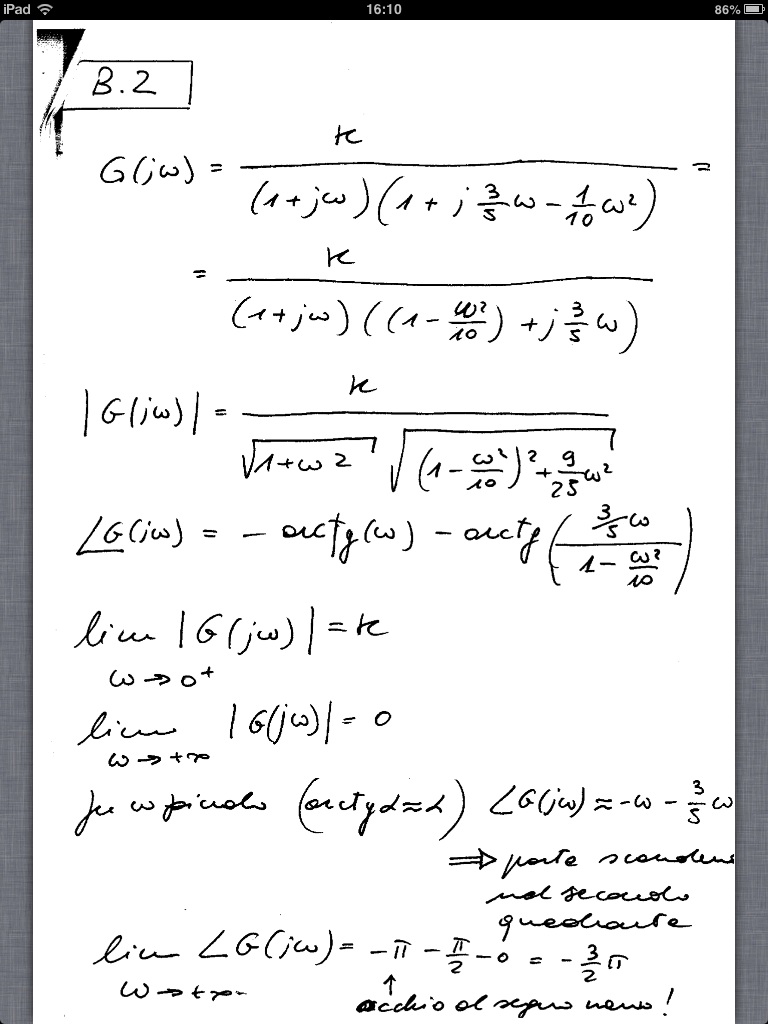 iPad 16:10 86%
B.2
G(jω) = K / (1+jω)(1 + j 3/5 ω − 1/10 ω²) =
= K / (1+jω)((1 − ω²/10) + j 3/5 ω)
|G(jω)| = K / √1+ω2 √(1 − ω²/10)² + 9/25 ω²
∠G(jω) = − arctg(ω) − arctg(3/5 ω / 1 − ω²/10)
lim |G(jω)| = K
ω → 0⁺
lim |G(jω)| = 0
ω → +∞
Per ω piccolo (arctg α ≈ α) ∠G(jω) ≈ −ω − 3/5 ω
⇒ parte
nel secondo
quadrante
lim ∠G(jω) = −π − π/2 − 0 = − 3/2 π
ω → +∞
↑
occhio al segno meno!